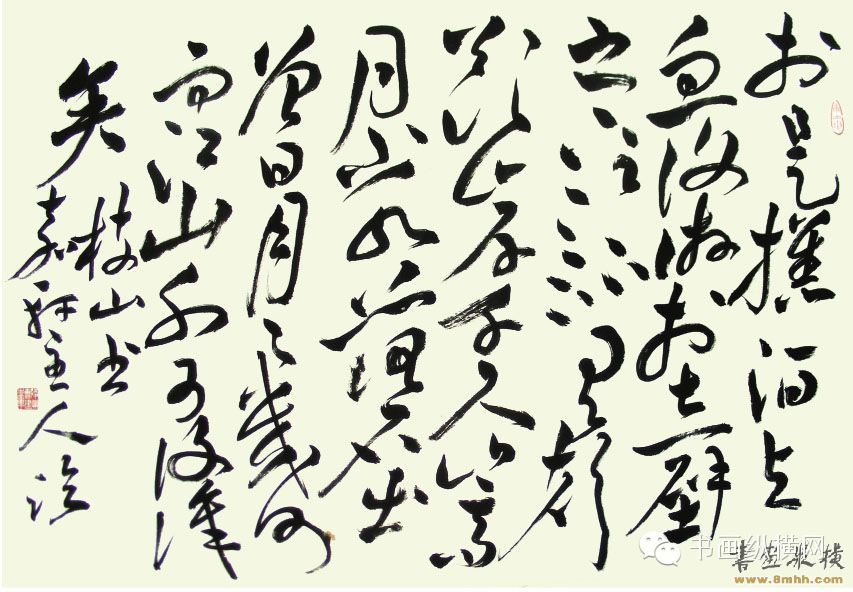 於是攜酒與
魚復游於赤壁
之下江流有聲
斷岸千尺山高
月小水落石出
曾日月之幾何
而江山不可復識
矣枝山書
嘉主人臨
书画纵横网
書畫縱橫
www.8mhh.com